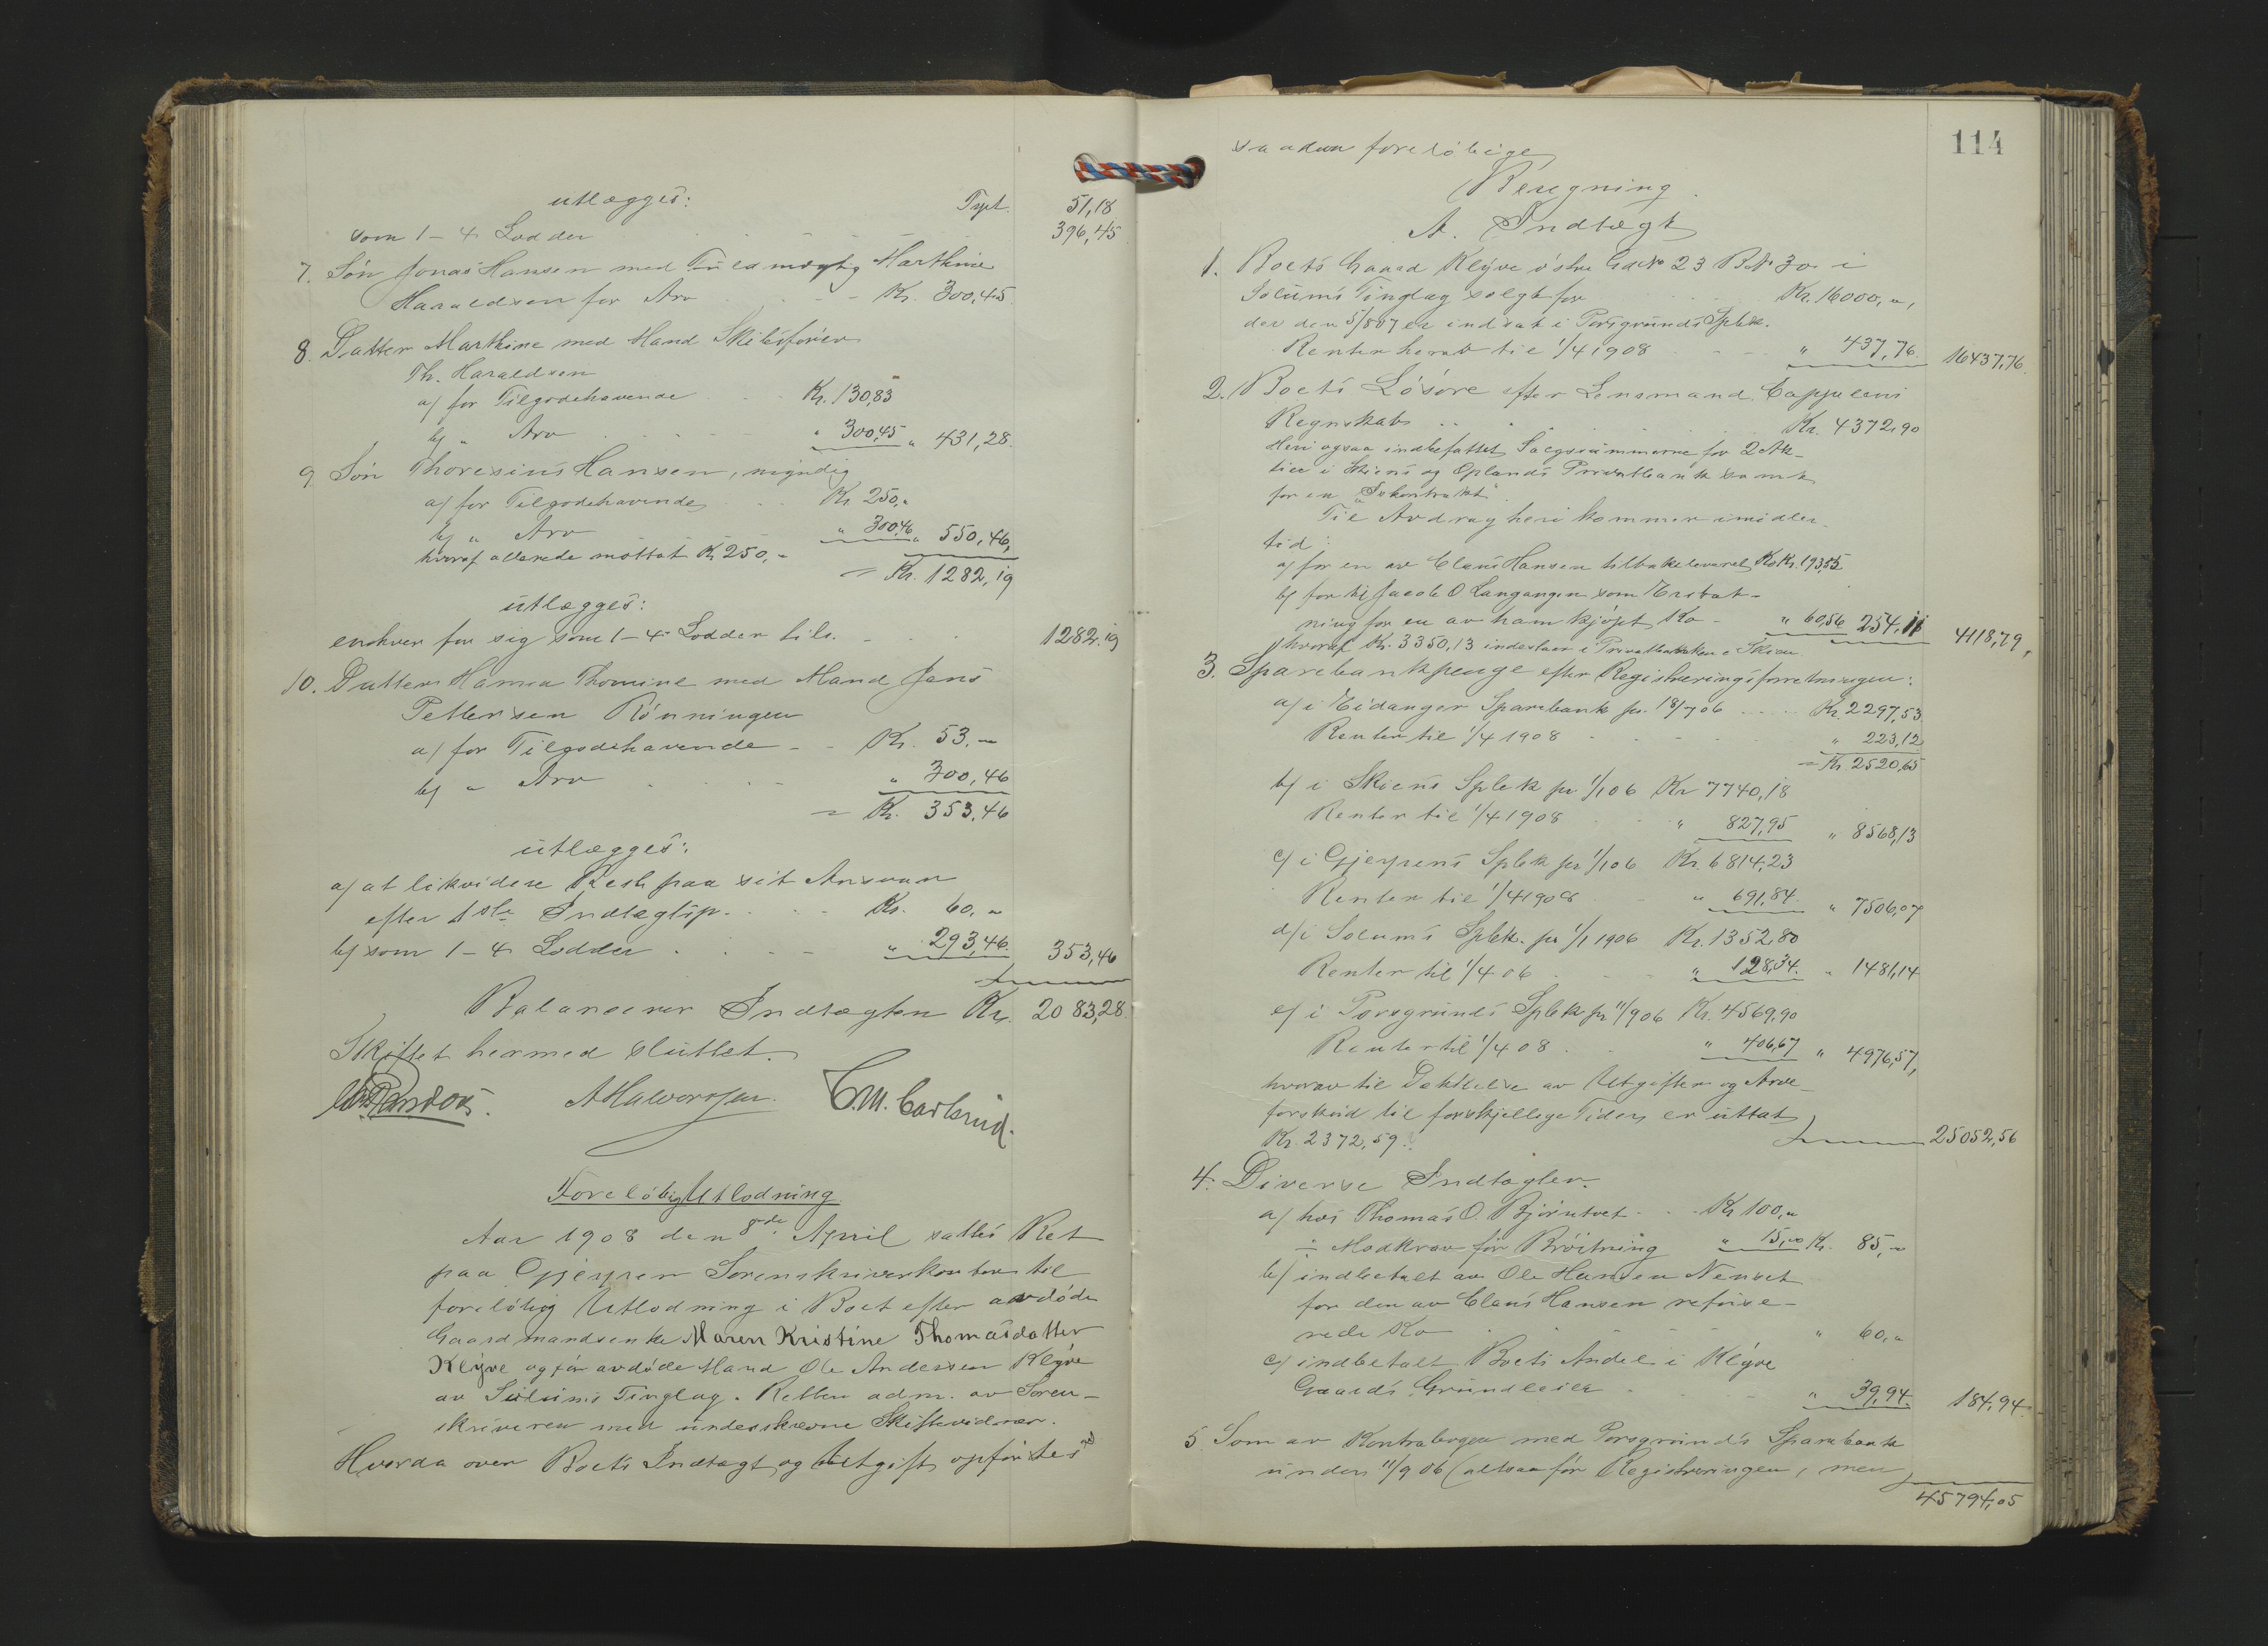 utlægges: Tspt. 51,18
som 1–4 Lodder 396,45
7. Søn Jonas Hansen med Fuldmægtig Marthine
Haraldsen for Arv Kr. 300,45.
8. Datter Marthine med Mand Skibsfører
Th. Haraldsen
a/ for Tilgodehavende Kr. 130,83
b/ " Arv " 300,45 " 431,28.
9. Søn Thoresius Hansen, myndig
a/ for Tilgodehavende Kr. 250,"
b/ " Arv " 300,46 " 550,46,
hvoraf allerede mottat Kr. 250,-
= Kr. 1282,19
utlægges:
enhver for sig som 1–4 Lodder tils. 1282.19
10. Datter Hanna Thomine med Mand Jens
Pettersen Rönningen
a/ for Tilgodehavende Kr. 53,–
b/ " Arv " 300,46
= Kr. 353,46
utlægges:
a/ at likvidere Rest paa sit Ansvar
efter 1ste Indtægtsp. Kr. 60,"
b/ som 1–4 Lodder " 293,46. 353,46
Balancerer Indtægten Kr. 2083,28.
Skiftet hermed sluttet.
A Halvorsen. C. M. Carlsrud.
Foreløbig Utlodning.
Aar 1908 den 8de April sattes Ret
paa Gjerpen Sorenskriverkontor til
foreløbig Utlodning i Boet efter avdøde
Gaardmandsenke Maren Kristine Thomasdatter
Klyve og før avdøde Mand Ole Andersen Klyve
av Solums Tinglag. Retten adm. av Soren-
skriveren med underskrevne Skiftevidner.
Hvorda over Boets Indtægt og Utgift opførtes
114
saadan foreløbige
Beregning.
A. Indtægt
1. Boets Gaard Klyve østre G.No 23 B.No 30 i
Solums Tinglag solgt for Kr. 16000,",
der den 5/8 07 er indsat i Porsgrunds Spbk.
Renter herav til 1/4 1908 " 437,76. 16437,76.
2. Boets Løsøre efter Lensmand Cappelens
Regnskab Kr. 4372,90
Heri ogsaa indbefattet Salgssummerne for 2 Ak-
tier i Skiens og Oplands Privatbank samt
for en "Iskontrakt".
Til Avdrag heri kommer imidler-
tid:
a/ for en av Claus Hansen tilbakelevert Ko Kr. 193,55
b/ for til Jacob O Langangen som Erstat-
ning for en av ham kjøpt Ko " 60,56 254,11 4118,79,
hvoraf Kr. 3350,13 indestaar i Privatbanken i Skien
3. Sparebankpenge efter Registreringsforretningen:
a/ i Eidanger Sparebank pr. 18/7 06 Kr. 2297,53
Renter til 1/4 1908 " 223,12
= Kr. 2520,65
b/ i Skiens Spbk pr 1/1 06 Kr 7740,18
Renter til 1/4 1908 " 827,95 " 8568,13
c/ i Gjerpens Spbk pr 1/1 06 Kr. 6814,23
Renter til 1/4 1908 " 691,84. " 7506,07
d/ i Solums Spbk. pr 1/1 1906 Kr. 1352,80
Renter til 1/4 06 " 128,34. " 1481,14
e/ i Porsgrunds Spbk pr 11/9 06 Kr. 4569,90
Renter til 1/4 08 " 406,67 " 4976,57,
hvorav til Dækkelse av Utgifter og Arve-
forskud til forskjellige Tider er uttat
Kr. 2372,59. 25052,56
4. Diverse Indtægter.
a/ hos Thomas O. Bjørntvet Kr 100,"
÷ Modkrav for Brøitning " 15,00 Kr. 85,"
b/ indbetalt av Ole Hansen Nenset
for den av Claus Hansen refuse-
rede Ko " 60,"
c/ indbetalt Boets Andel i Klyve
Gaards Grundleier " 39,94. 184,94.
5. Som av Kontrabogen med Porsgrunds Sparebank
under 11/9 06 (altsaa før Registreringen, men
45794,05